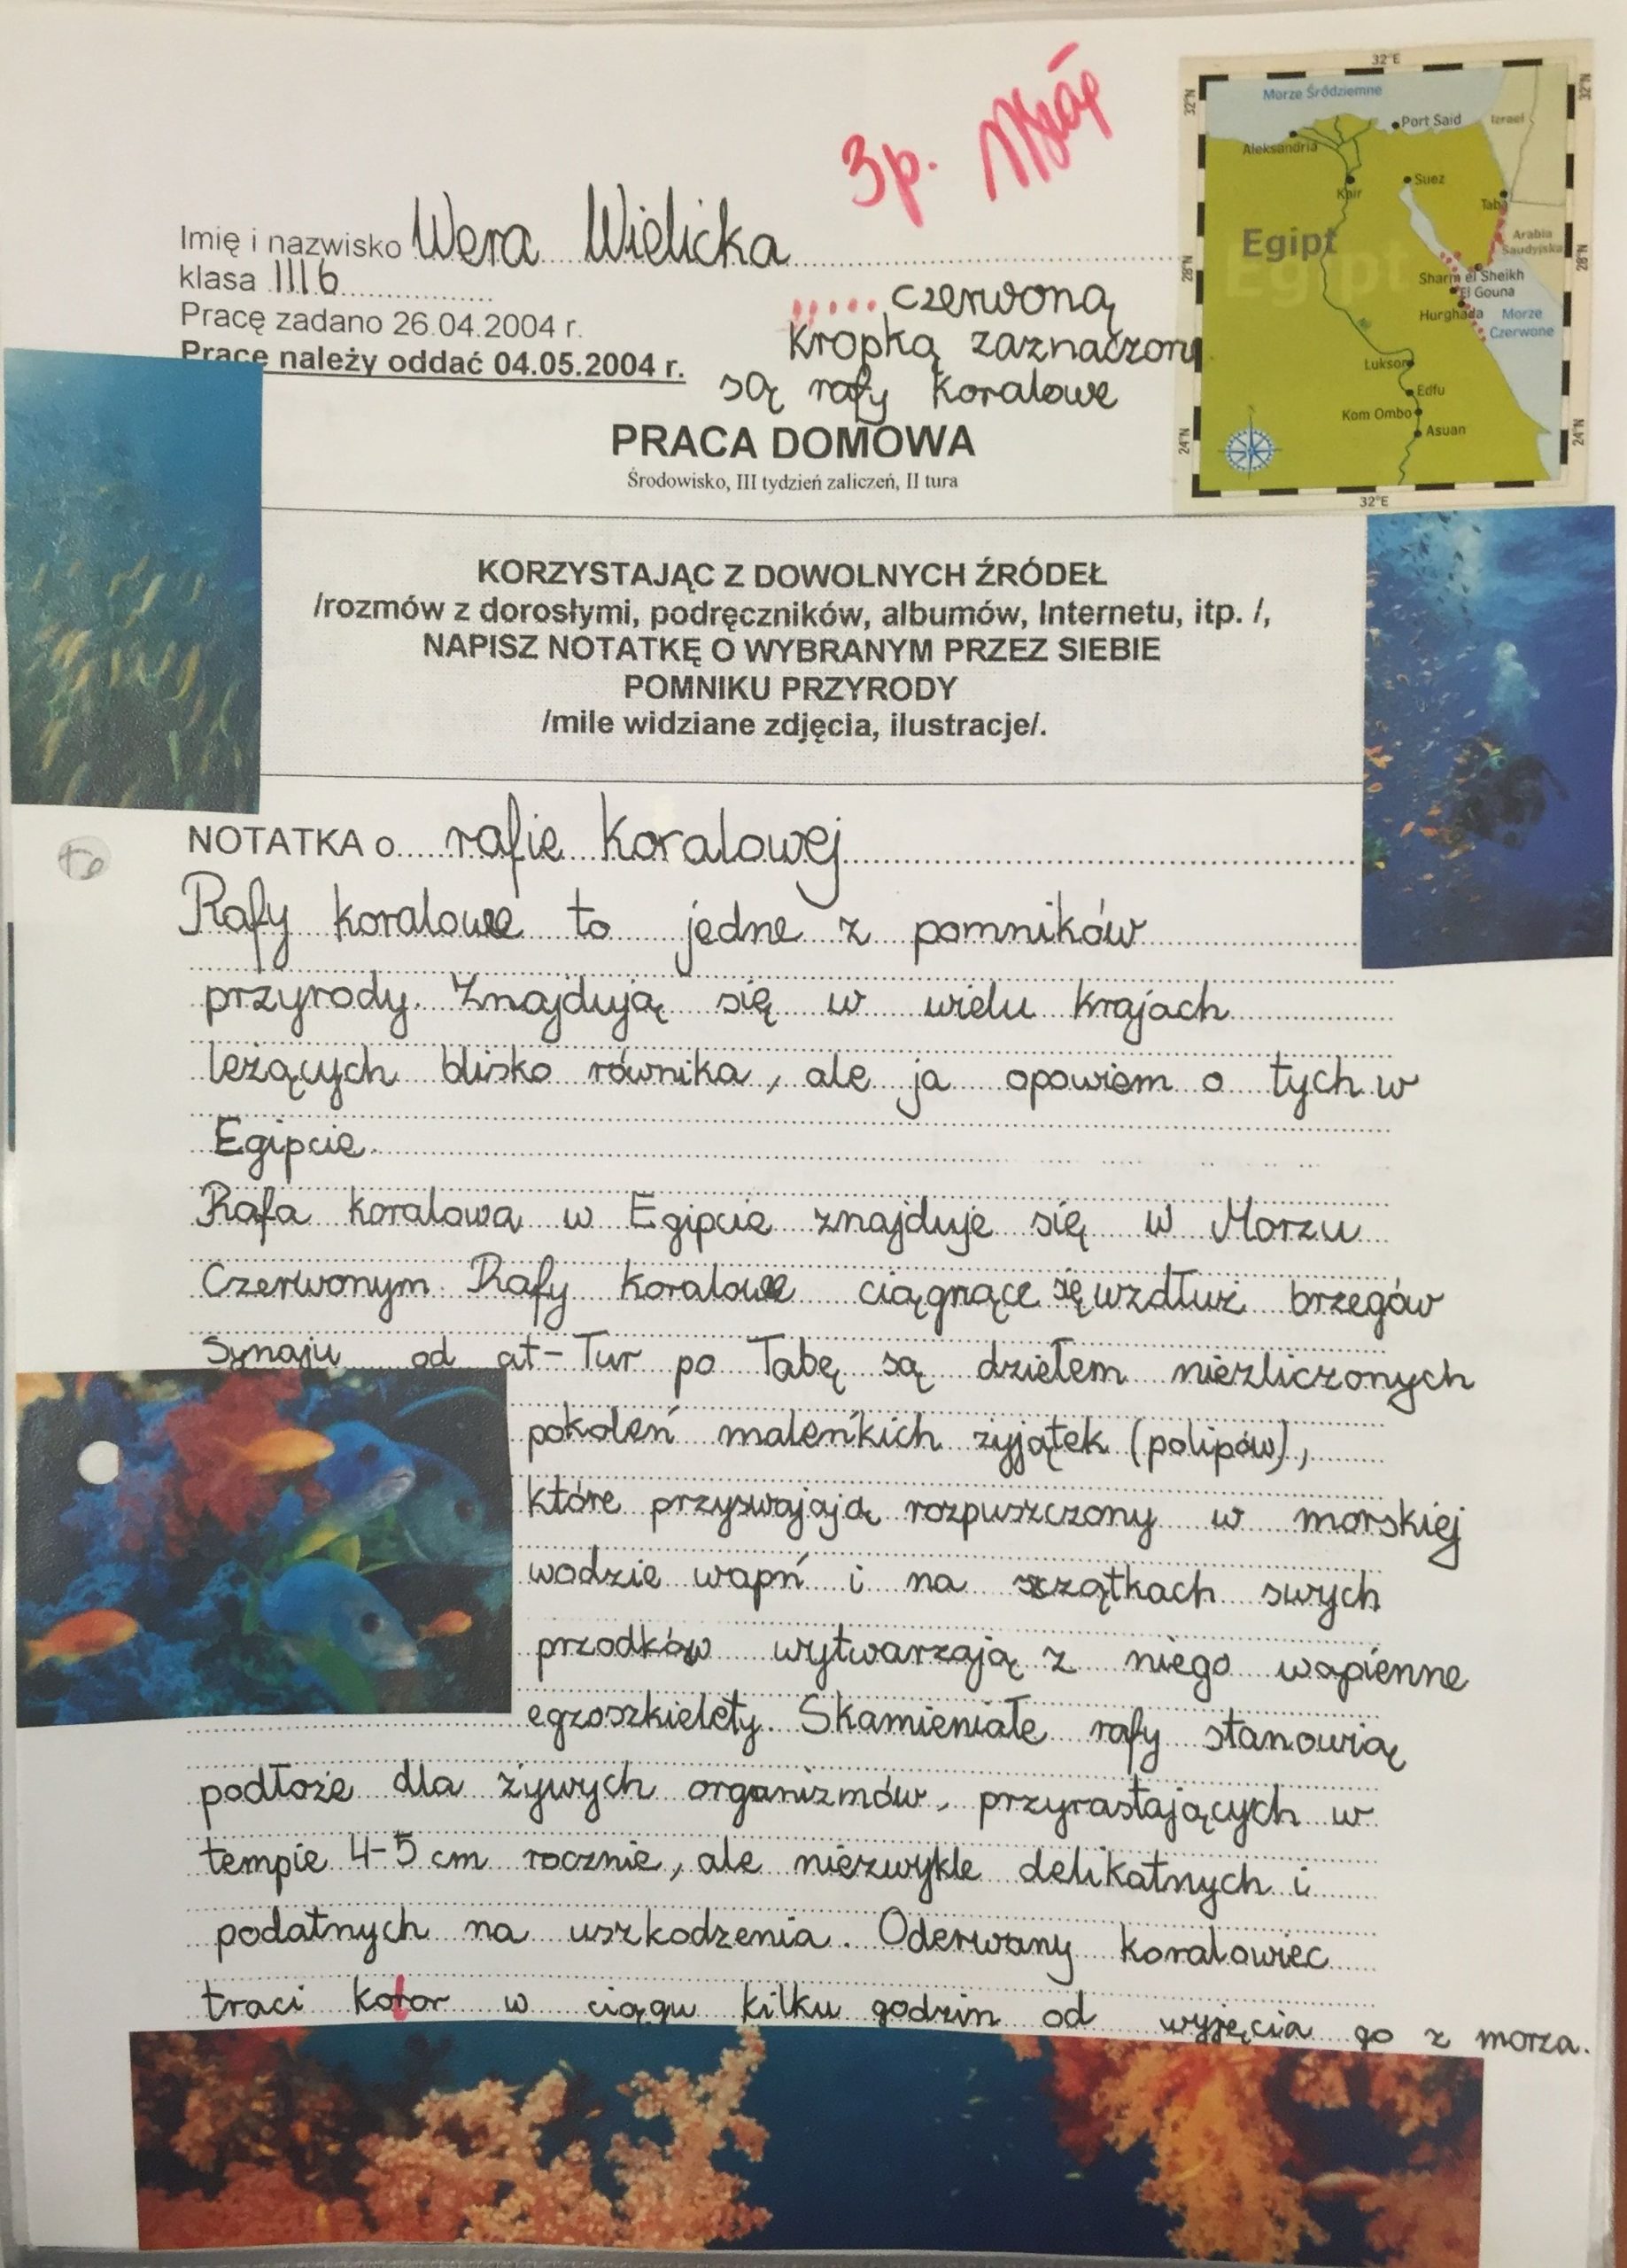 3p.
Imię i nazwisko Wera Wielicka
klasa III b
Pracę zadano 26.04.2004 r.
Pracę należy oddać 04.05.2004 r.
..... czerwoną
kropką zaznaczony
są rafy koralowe
32°E
32°N
32°N
Morze Śródziemne
Port Said
Izrael
Aleksandria
Kair
Suez
Taba
Egipt
Arabia
Saudyjska
28°N
28°N
Sharm el Sheikh
El Gouna
Hurghada
Morze
Czerwone
Nil
Luksor
Edfu
Kom Ombo
Asuan
24°N
24°N
32°E
PRACA DOMOWA
Środowisko, III tydzień zaliczeń, II tura
KORZYSTAJĄC Z DOWOLNYCH ŹRÓDEŁ
/rozmów z dorosłymi, podręczników, albumów, Internetu, itp. /,
NAPISZ NOTATKĘ O WYBRANYM PRZEZ SIEBIE
POMNIKU PRZYRODY
/mile widziane zdjęcia, ilustracje/.
NOTATKA o rafie koralowej
Rafy koralowe to jedne z pomników
przyrody. Znajdują się w wielu krajach
leżących blisko równika, ale ja opowiem o tych w
Egipcie.
Rafa koralowa w Egipcie znajduje się w Morzu
Czerwonym. Rafy koralowe ciągnące się wzdłuż brzegów
Synaju od at-Tur po Tabę są dziełem niezliczonych
pokoleń maleńkich żyjątek (polipów),
które przyswajają rozpuszczony w morskiej
wodzie wapń i na szczątkach swych
przodków wytwarzają z niego wapienne
egzoszkielety. Skamieniałe rafy stanowią
podłoże dla żywych organizmów, przyrastających w
tempie 4-5 cm rocznie, ale niezwykle delikatnych i
podatnych na uszkodzenia. Oderwany koralowiec
traci kolor w ciągu kilku godzin od wyjęcia go z morza.